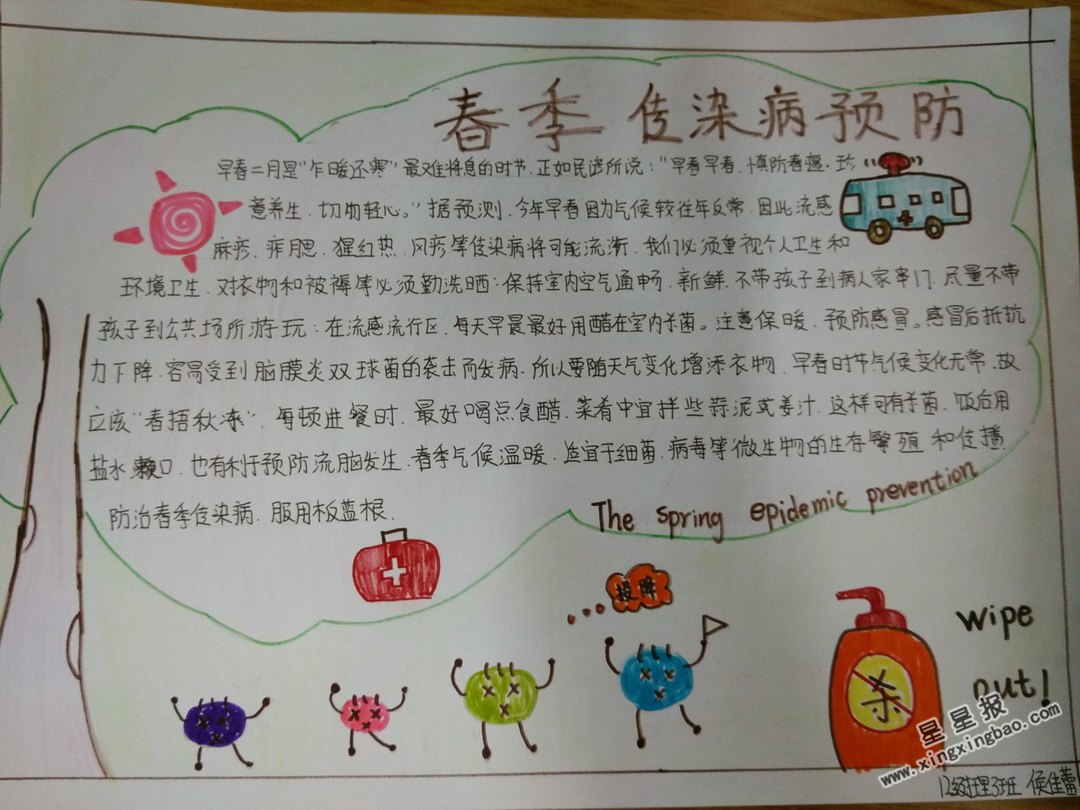 春季传染病预防
早春二月是“乍暖还寒”最难将息的时节,正如民谚所说:“早春早春,慎防春瘟,珍
意养生,切勿轻心。”据预测,今年早春因为气候较往年反常,因此流感
麻疹,痄腮,猩红热,风疹等传染病将可能流渐,我们必须重视个人卫生和
环境卫生,对衣物和被褥等必须勤洗晒:保持室内空气通畅,新鲜,不带孩子到病人家串门,尽量不带
孩子到公共场所游玩:在流感流行区,每天早晨最好用醋在室内杀菌。注意保暖,预防感冒。感冒后抵抗
力下降,容易受到脑膜炎双球菌的袭击而发病,所以要随天气变化增添衣物,早春时节气候变化无常,故
立该“春捂秋冻”,每顿进餐时,最好喝点食醋,菜肴中宜拌些蒜泥或姜汁,这样可有杀菌,饭后用
盐水漱口,也有利于预防流脑发生,春季气候温暖,适宜于细菌,病毒等微生物的生存繁殖和传播,
防治春季传染病,服用板蓝根,
The spring epidemic prevention
投降
wipe
out!
杀
星星报
www.xingxingbao.com
12级护理3班 侯佳蕾